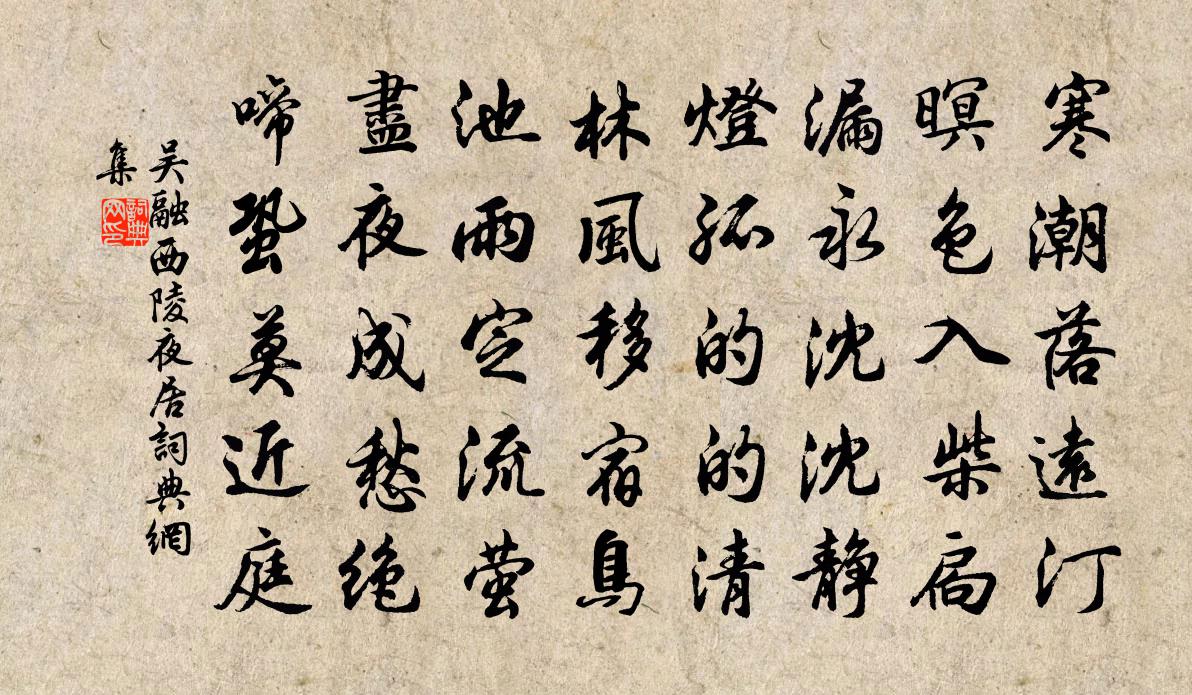 寒潮落遠汀
暝色入柴扃
漏永沈沈靜
燈孤的的清
林風移宿鳥
池雨定流螢
盡夜成愁絕
啼蛩莫近庭
吴融西陵夜居詞典網
集
詞典網印